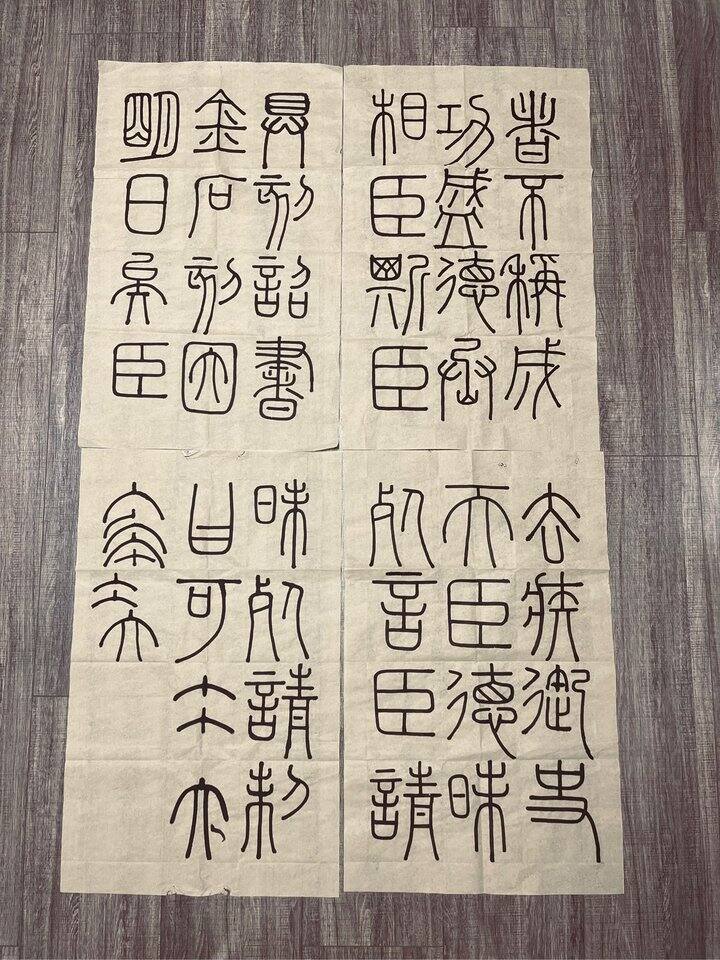 者不稱成
功盛德丞
相臣斯臣
去疾御史
夫臣德昧
死言臣請
具刻詔書
金石刻因
明白矣臣
昧死請制
曰可